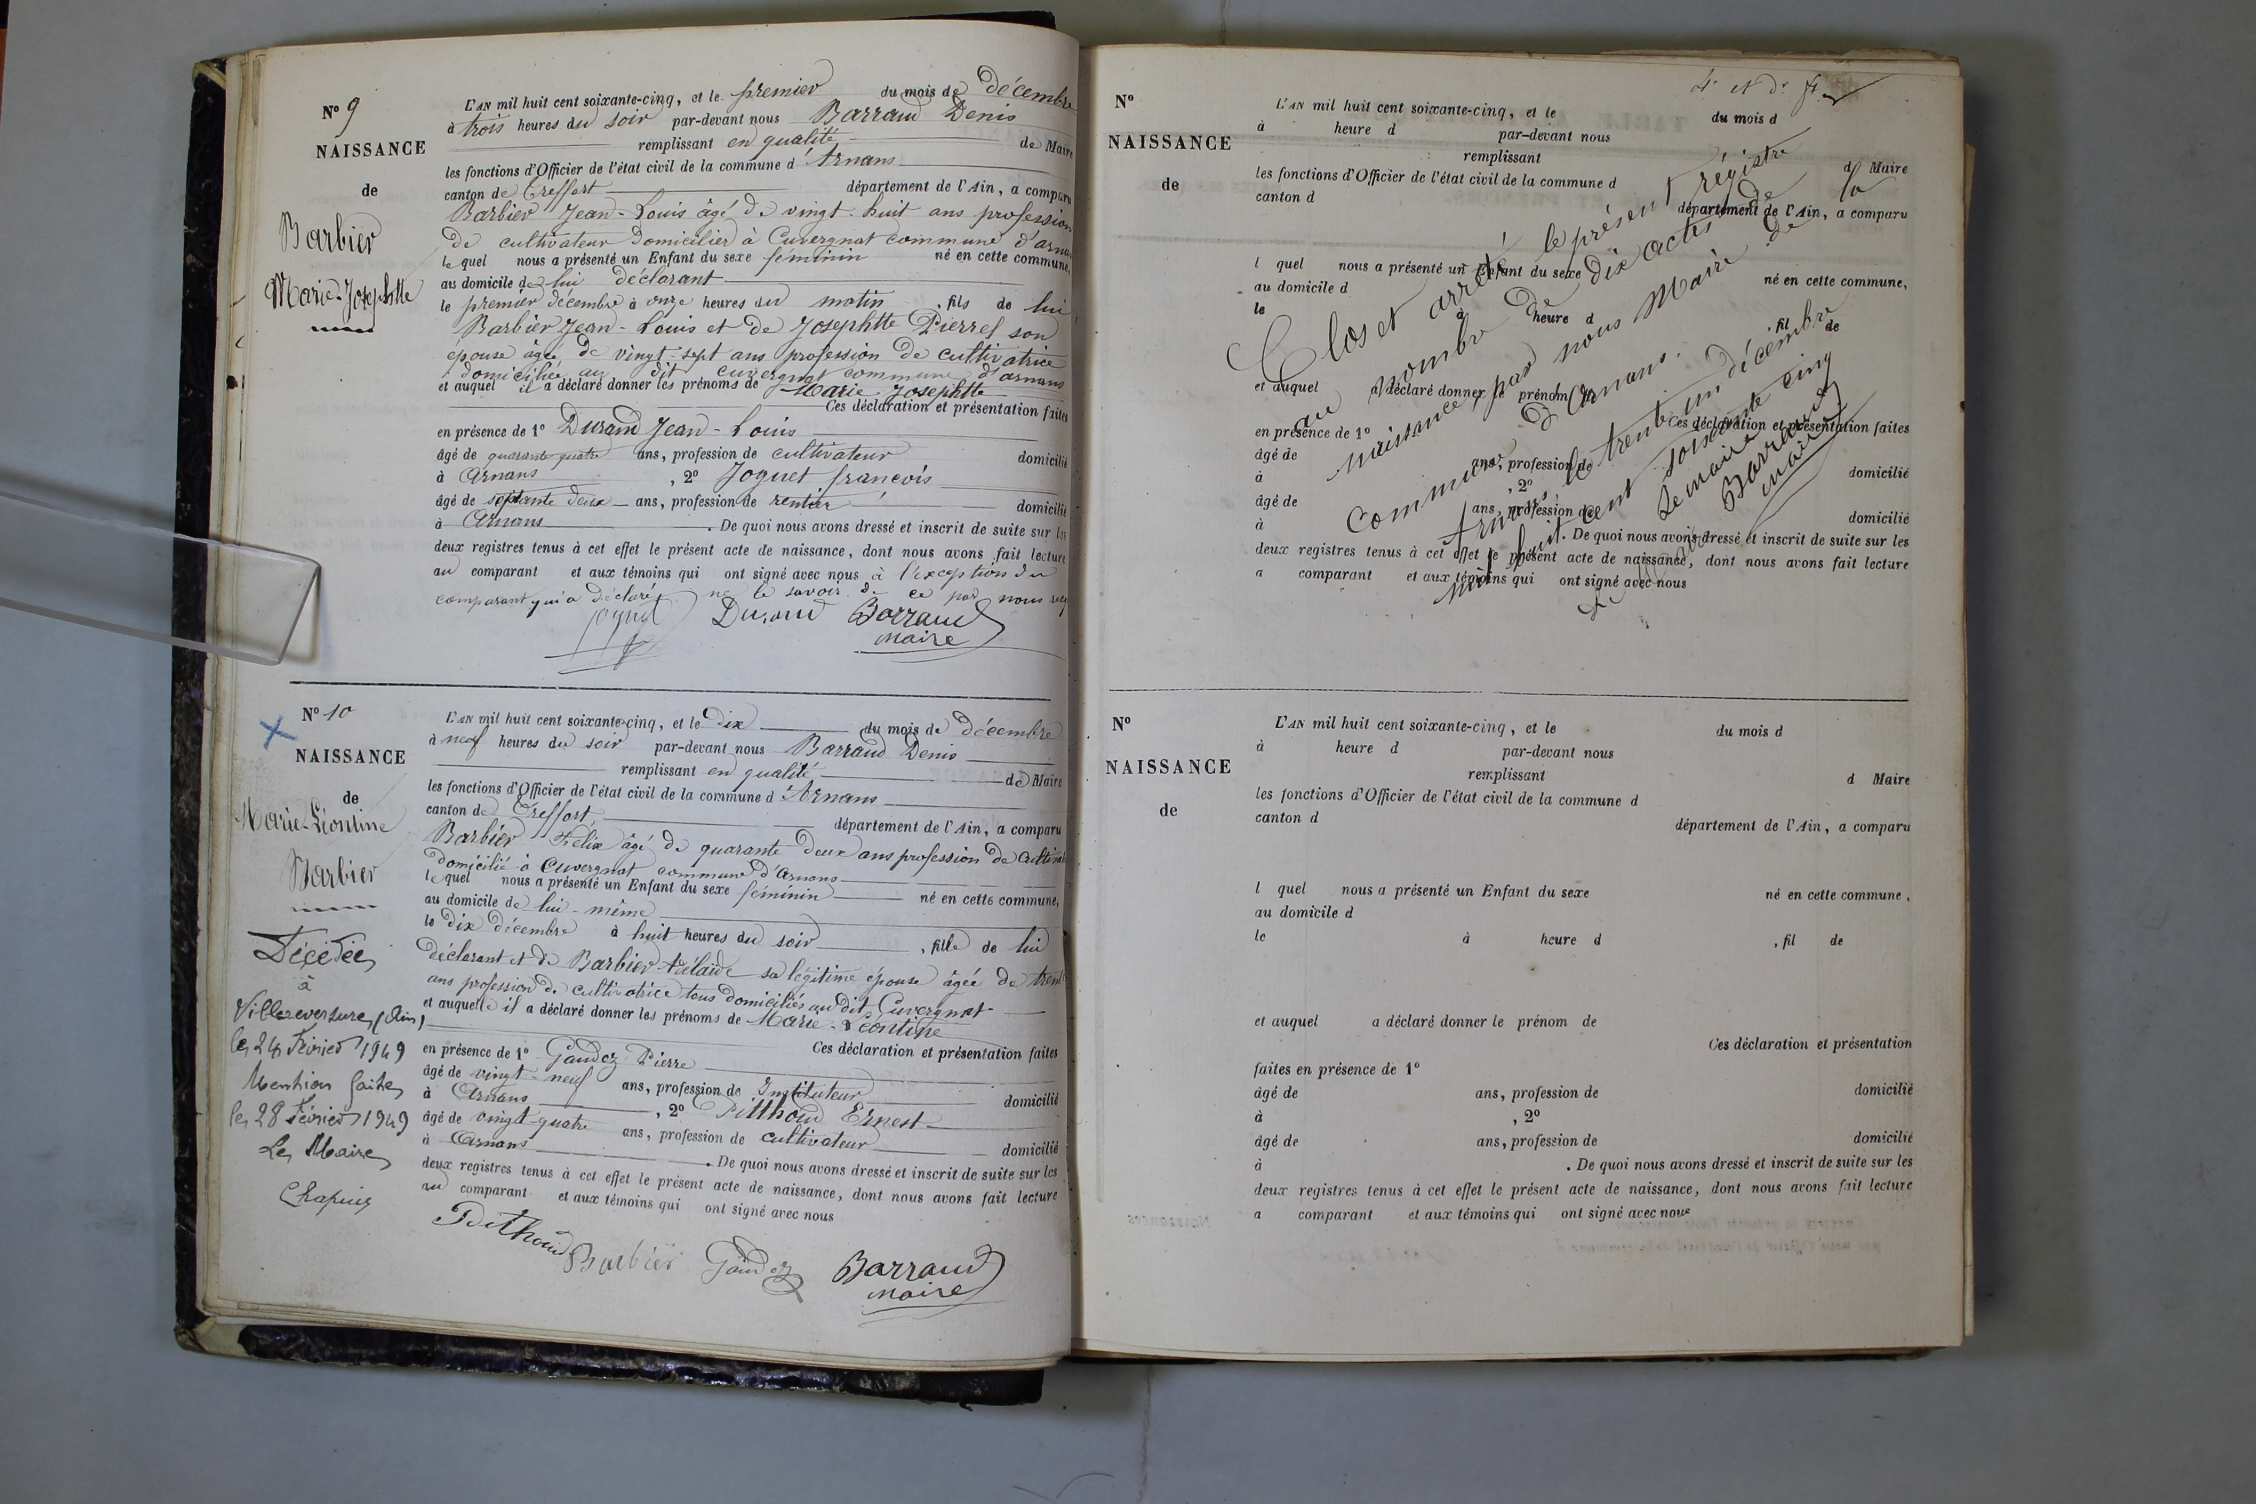 N° 9
NAISSANCE
de
Barbier
Marie-Josephtte
L'AN mil huit cent soixante-cinq, et le premier du mois de décembre
à trois heures du soir par-devant nous Barraud Denis
remplissant en qualité de Maire
les fonctions d'Officier de l'état civil de la commune d'Arnans
canton de Treffort département de l'Ain, a comparu
Barbier Jean-Louis âgé de vingt-huit ans profession
de cultivateur domicilier à Cuvergnat commune d'arnans
lequel nous a présenté un Enfant du sexe féminin né en cette commune,
au domicile de lui déclarant
le premier décembre à onze heures du matin, fils de lui
Barbier Jean-Louis et de Josephtte Pierrel son
épouse âgée de vingt-sept ans profession de cultivatrice
domiciliée au dit cuvergnat commune d'arnans
et auquel il a déclaré donner les prénoms de Marie Josephtte
Ces déclaration et présentation faites
en présence de 1° Durand Jean-Louis
âgé de quarante quatre ans, profession de cultivateur domicilié
à Arnans, 2° Joguet françois
âgé de septante deux ans, profession de rentier domicilié
à Arnans. De quoi nous avons dressé et inscrit de suite sur les
deux registres tenus à cet effet le présent acte de naissance, dont nous avons fait lecture
au comparant et aux témoins qui ont signé avec nous à l'exception du
comparant qui a déclaré ne le savoir de ce par nous
Joguet Durand Barraud
maire
N° 10
NAISSANCE
de
Marie-Léontine
Barbier
Décédée
à
Villereversure (Ain)
le 24 Février 1949
Mention faite
le 28 Février 1949
Le Maire
Chapuis
L'AN mil huit cent soixante-cinq, et le dix du mois de décembre
à neuf heures du soir par-devant nous Barraud Denis
remplissant en qualité de Maire
les fonctions d'Officier de l'état civil de la commune d'Arnans
canton de Treffort département de l'Ain, a comparu
Barbier Félix âgé de quarante deux ans profession de cultivat
domicilié à Cuvergnat commune d'Arnans
lequel nous a présenté un Enfant du sexe féminin né en cette commune,
au domicile de lui-même
le dix décembre à huit heures du soir, fille de lui
déclarant et de Barbier Adélaïde sa légitime épouse âgée de trente
ans profession de cultivatrice tous domiciliés au dit Cuvergnat
et auquelle il a déclaré donner les prénoms de Marie-Léontine
Ces déclaration et présentation faites
en présence de 1° Gaudez Pierre
âgé de vingt-neuf ans, profession de Instituteur domicilié
à Arnans, 2° Pitthoud Ernest
âgé de vingt-quatre ans, profession de cultivateur domicilié
à Arnans. De quoi nous avons dressé et inscrit de suite sur les
deux registres tenus à cet effet le présent acte de naissance, dont nous avons fait lecture
au comparant et aux témoins qui ont signé avec nous
Pitthoud Barbier Gaudez Barraud
maire
N°
NAISSANCE
de
L'AN mil huit cent soixante-cinq, et le du mois d
à heure d par-devant nous
remplissant d Maire
les fonctions d'Officier de l'état civil de la commune d
canton d département de l'Ain, a comparu
l quel nous a présenté un Enfant du sexe né en cette commune,
au domicile d
le à heure d, fil de
et auquel a déclaré donner le prénom de
Ces déclaration et présentation faites
en présence de 1°
âgé de ans, profession de domicilié
à, 2°
âgé de ans, profession de domicilié
à. De quoi nous avons dressé et inscrit de suite sur les
deux registres tenus à cet effet le présent acte de naissance, dont nous avons fait lecture
a comparant et aux témoins qui ont signé avec nous
Clos et arrêté le présent régistre
au nombre de dix actes de
naissance, par nous Maire de la
commune d'Arnans.
Arnans le trente un décembre
mil huit cent soixante cinq
Le maire
Barraud
maire
N°
NAISSANCE
de
L'AN mil huit cent soixante-cinq, et le du mois d
à heure d par-devant nous
remplissant d Maire
les fonctions d'Officier de l'état civil de la commune d
canton d département de l'Ain, a comparu
l quel nous a présenté un Enfant du sexe né en cette commune,
au domicile d
le à heure d, fil de
et auquel a déclaré donner le prénom de
Ces déclaration et présentation
faites en présence de 1°
âgé de ans, profession de domicilié
à, 2°
âgé de ans, profession de domicilié
à. De quoi nous avons dressé et inscrit de suite sur les
deux registres tenus à cet effet le présent acte de naissance, dont nous avons fait lecture
a comparant et aux témoins qui ont signé avec nous